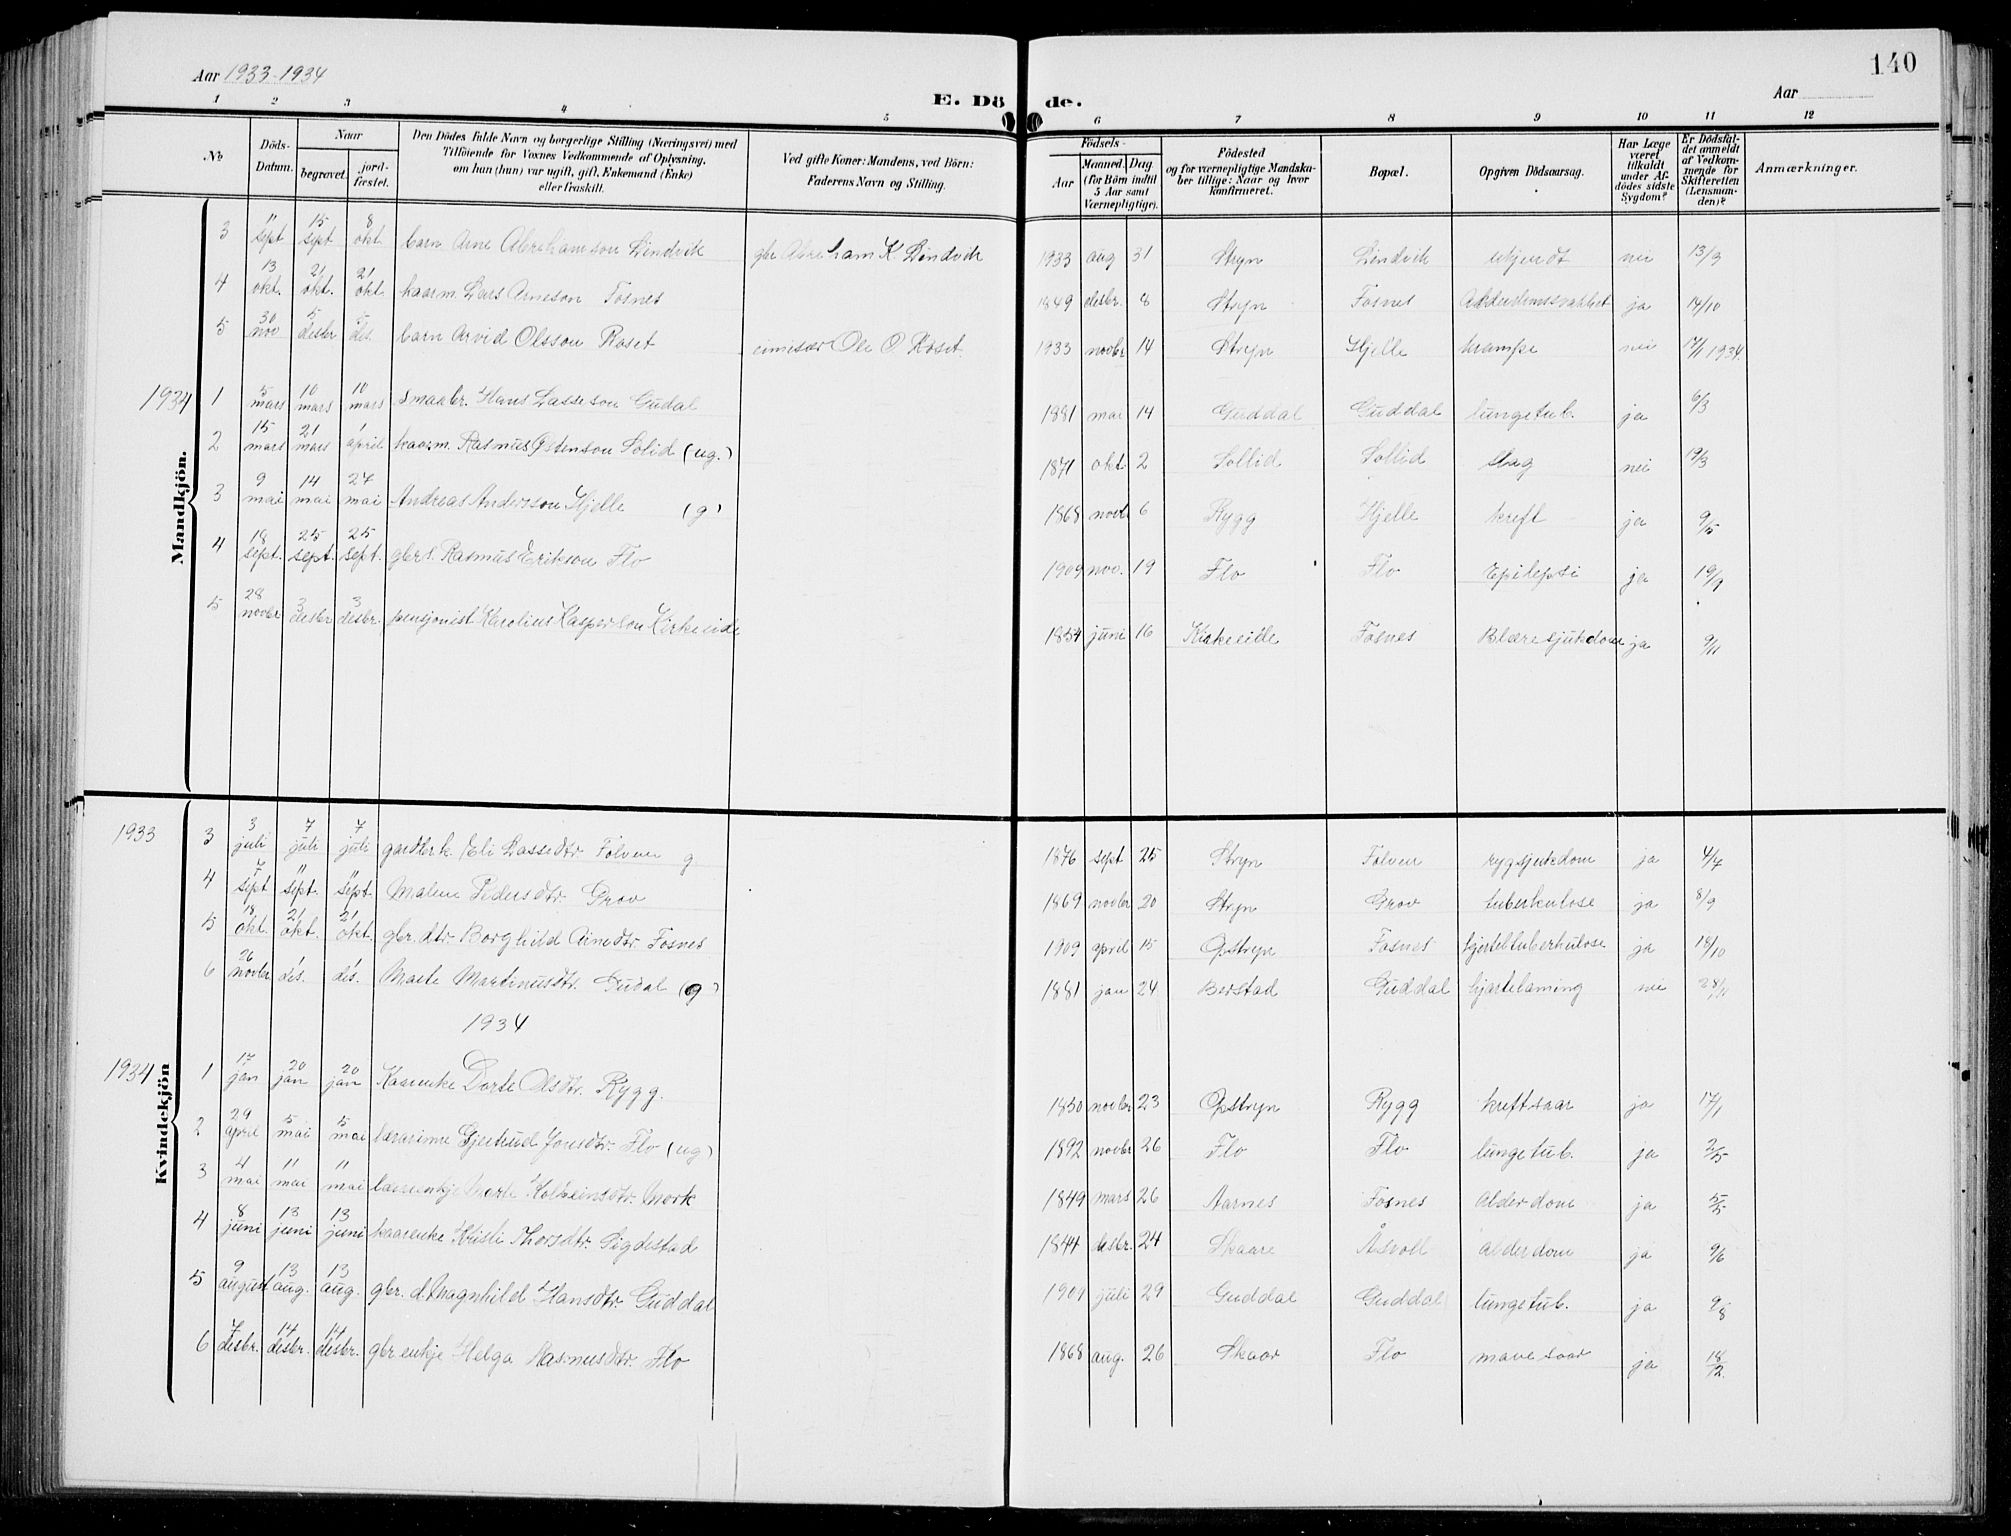 140
Aar 1933-1934
Aar
E. Döde.
1 2 3 4 5 6 7 8 9 10 11 12
№
Döds-Datum.
Naar
begravet.
jord-fæstet.
Den Dödes fulde Navn og borgerlige Stilling (Næringsvei) med Tilföiende for Voxnes Vedkommende af Oplysning, om han (hun) var ugift, gift, Enkemand (Enke) eller fraskilt.
Ved gifte Koner: Mandens, ved Börn: Faderens Navn og Stilling.
Födsels-
Aar
Maaned. Dag.
(for Börn indtil 5 Aar samt Værnepligtige).
Födested og for værnepligtige Mandska-ber tillige: Naar og hvor konfirmeret.
Bopæl.
Opgiven Dödsaarsag.
Har Læge været tilkaldt under Af-dödes sidste Sygdom?
Er Dödsfal-det anmeldt af Vedkom-mende for Skifteretten (Lensman-den)?
Anmærkninger.
Mandkjön.
3 11 sept 15 sept 8 okt. barn Arne Abrahamson Lindvik gbr Abraham K Lindvik 1933 aug 31 Stryn Lindvik ukjendt nei 13/9
4 13 okt. 21 okt. 21 okt kaarm. Lars Arneson Fosnes 1849 desbr. 8 Stryn Fosnes ja 14/10
5 30 nov 5 desbr 5 des. barn Arvid Olsson Roset Ole O. Roset. 1933 novbr 14 Stryn Hjelle krampe nei 17/1 1934
1934 1 5 mars 10 mars 10 mars smaabr. Hans Lasseson Gudal 1881 mai 14 Guddal Guddal lungetub. ja 6/3
2 15 mars 21 mars 1 april kaarm. Rasmus Østenson Solid (ug.) 1871 okt 2 Sollid Sollid slag nei 19/3
3 9 mai 14 mai 27 mai Andreas Andersson Hjelle (g) 1868 novbr 6 Rygg Hjelle kreft ja 9/5
4 18 sept. 25 sept. 25 sept. gbrs. Rasmus Erikson Flo 1909 nov. 19 Flo Flo Epilepsi ja 19/9
5 28 novbr 3 desbr 3 desbr. pensjonist Karolius Kasperson Kirkeeide 1854 juni 16 Kirkeeide Fosnes Blæresjukdom ja 9/11
Kvindekjön
1933 3 3 juli 7 juli 7 juli gardbrk. Eli Lassedtr Folven g 1876 sept 25 Stryn Folven rygsjukdom ja 4/7
4 7 sept 11 sept. 11 sept. Malene Pedersdtr. Grov 1869 novbr 20 Stryn Grov tuberkulose ja 8/9
5 18 okt. 21 okt. 21 okt. gbr. dtr. Borghild Arnedtr. Fosnes 1909 april 15 Opstryn Fosnes ja 18/10
6 26 novbr 1 des. 1 des. Marte Martinusdtr. Gudal (g) 1881 jan 24 Berstad Guddal hjartelaming nei 28/11
1934
1934 1 17 jan 20 jan 20 jan Kaarenke Dorte Olsdtr. Rygg. 1850 novbr 23 Opstryn Rygg kreftsaar ja 17/1
2 29 april 5 mai 5 mai lærarinne Gjertrud Jonsdtr. Flo (ug) 1892 novbr 26 Flo Flo lungetub. ja 2/5
3 4 mai 11 mai 11 mai Marte Kolbeinsdtr. Mork 1849 mars 26 Aarnes Fosnes Alderdom ja 5/5
4 8 juni 13 juni 13 juni kaarenke Kristi Thorsdtr. Sigdestad 1844 desbr. 24 Skaare Åsvoll alderdom ja 9/6
5 9 august 13 aug. 13 aug. gbr. d. Magnhild Hansdtr. Guddal 1901 juli 29 Guddal Guddal lungetub. ja 9/8
6 7 desbr. 14 desbr. 14 desbr. gbr. enkje Helga Rasmusdtr. Flo 1868 aug. 26 Skaar Flo mavesaar ja 18/12